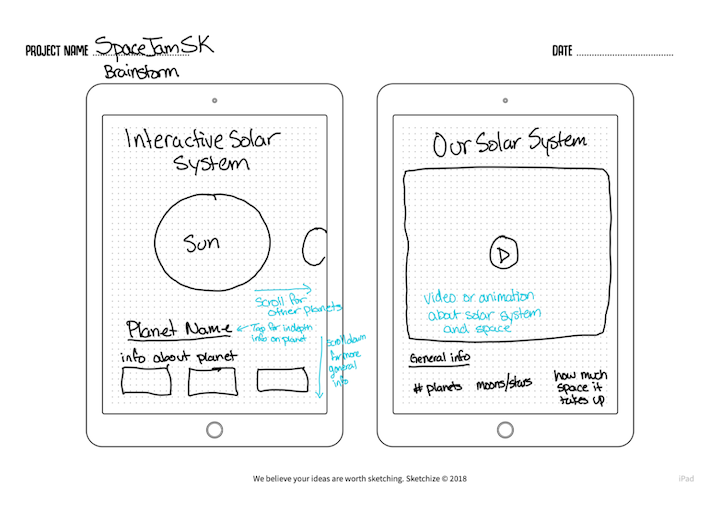 PROJECT NAME SpaceJamSK
DATE
Brainstorm
Interactive Solar
System
Sun
Scroll for
other planets
Planet Name
Tap for indepth
info on planet
info about planet
scroll down
for more
general
info
Our Solar System
video or animation
about solar system
and space
General info
# planets
moons/stars
how much
space it
takes up
We believe your ideas are worth sketching. Sketchize © 2018
iPad